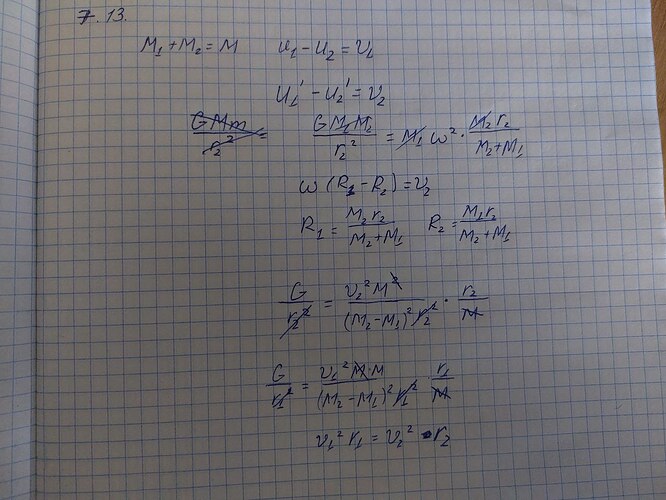 7.13.
M₁ + M₂ = M   u₁ - u₂ = v₁
u₁' - u₂' = v₂
GMm/r₂² = GM₁M₂/r₂² = M₁ω² · M₂r₂/(M₂+M₁)
ω(R₁ - R₂) = v₂
R₁ = M₂r₂/(M₂+M₁)   R₂ = M₁r₂/(M₂+M₁)
G/r₂² = v₂²M²/((M₂-M₁)²r₂²) · r₂/M
G/r₁² = v₁²M·M/((M₂-M₁)²r₁²) r₁/M
v₁²r₁ = v₂² · r₂